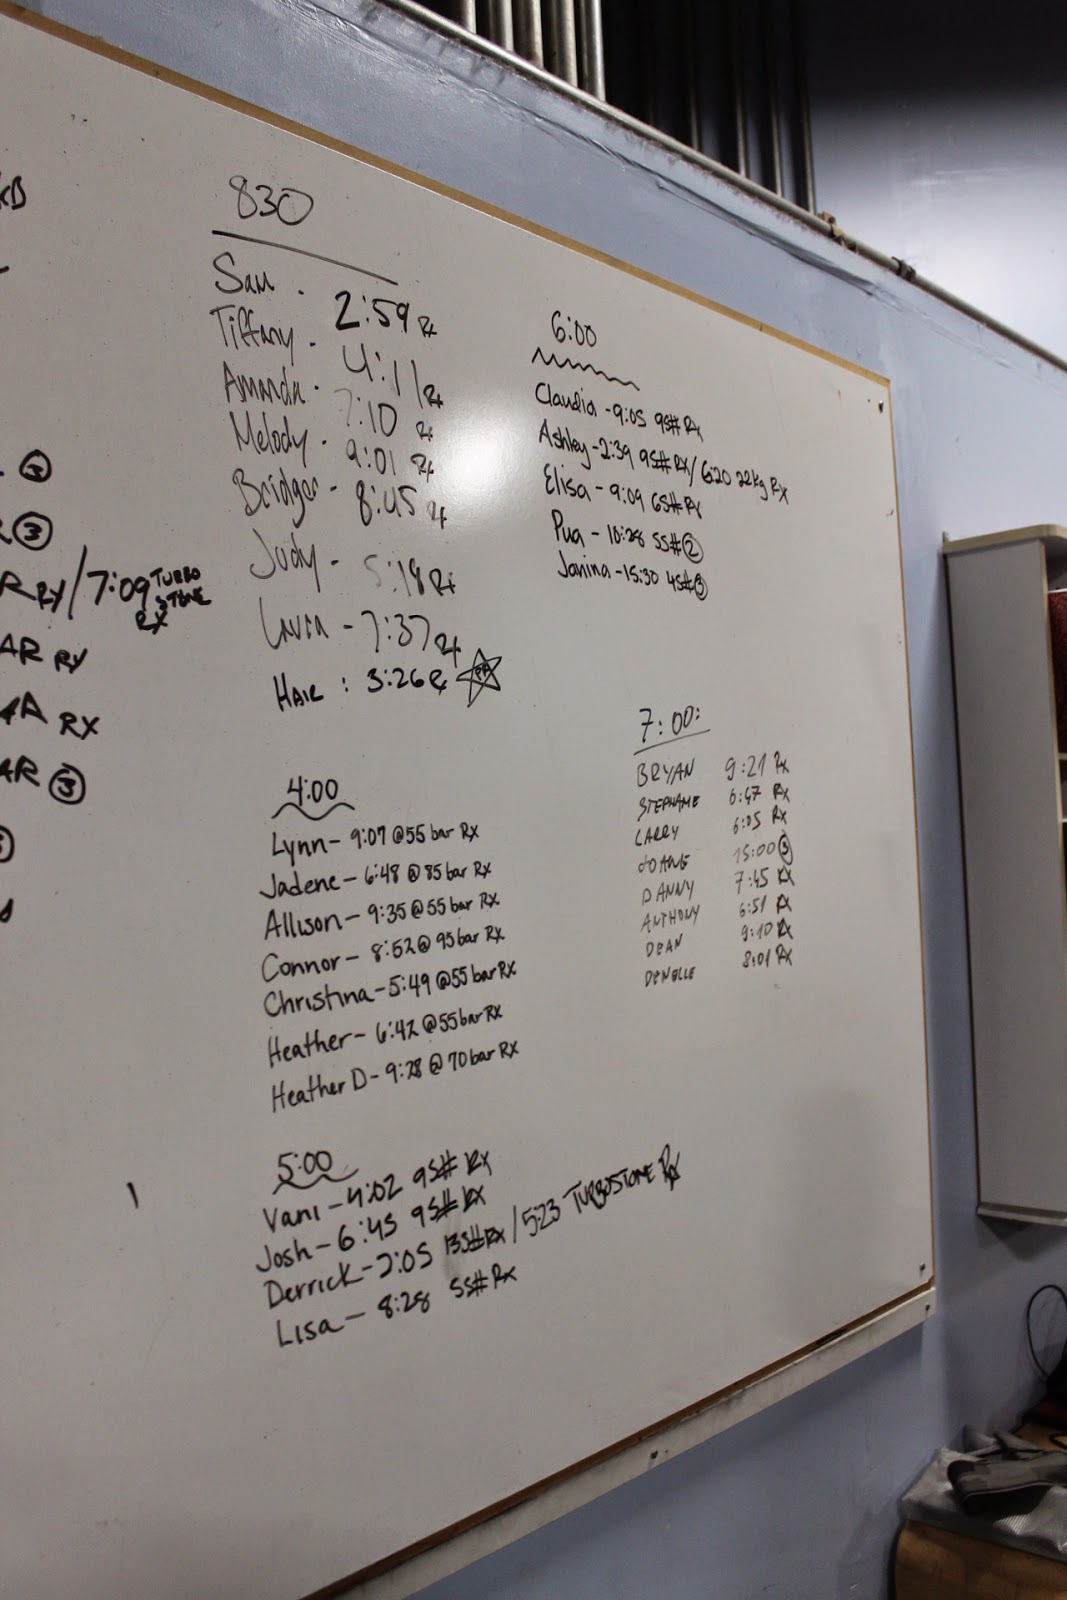 830
Sam. 2:59 Rx
Tiffany. 4:11 Rx
Amanda. 7:10 Rx
Melody. 9:01 Rx
Bridger- 8:45 Rx
Judy- 5:18 Rx
- 7:37 Rx
HAIL: 3:26 Rx PR
4:00
Lynn- 9:07 @55 bar Rx
Jadene- 6:48 @ 85 bar Rx
Allison- 9:35 @ 55 bar Rx
Connor- 8:52 @ 95 bar Rx
Christina- 5:49 @55 bar Rx
Heather- 6:42 @55 bar Rx
Heather D- 9:28 @ 70 bar Rx
5:00
Vani- 4:02 95# Rx
Josh- 6:45 95# RX
Derrick- 2:05 135# Rx / 5:23 TURBOSTONE Rx
Lisa- 8:28 55# Rx
6:00
Claudia - 9:05 95# Rx
Ashley - 2:39 95# RX / 6:20 22kg Rx
Elisa - 9:09 65# RX
Pua - 10:28 55# 2
Janina - 15:30 45# 3
7:00:
BRYAN 9:21 Rx
STEPHANIE 6:47 Rx
LARRY 6:05 Rx
JOANE 15:00 3
DANNY 7:45 RX
ANTHONY 6:51 RX
DEAN 9:10 RX
DENELLE 8:01 RX
2
3
RX / 7:09 TURBO STONE RX
AR RX
RX
AR 3